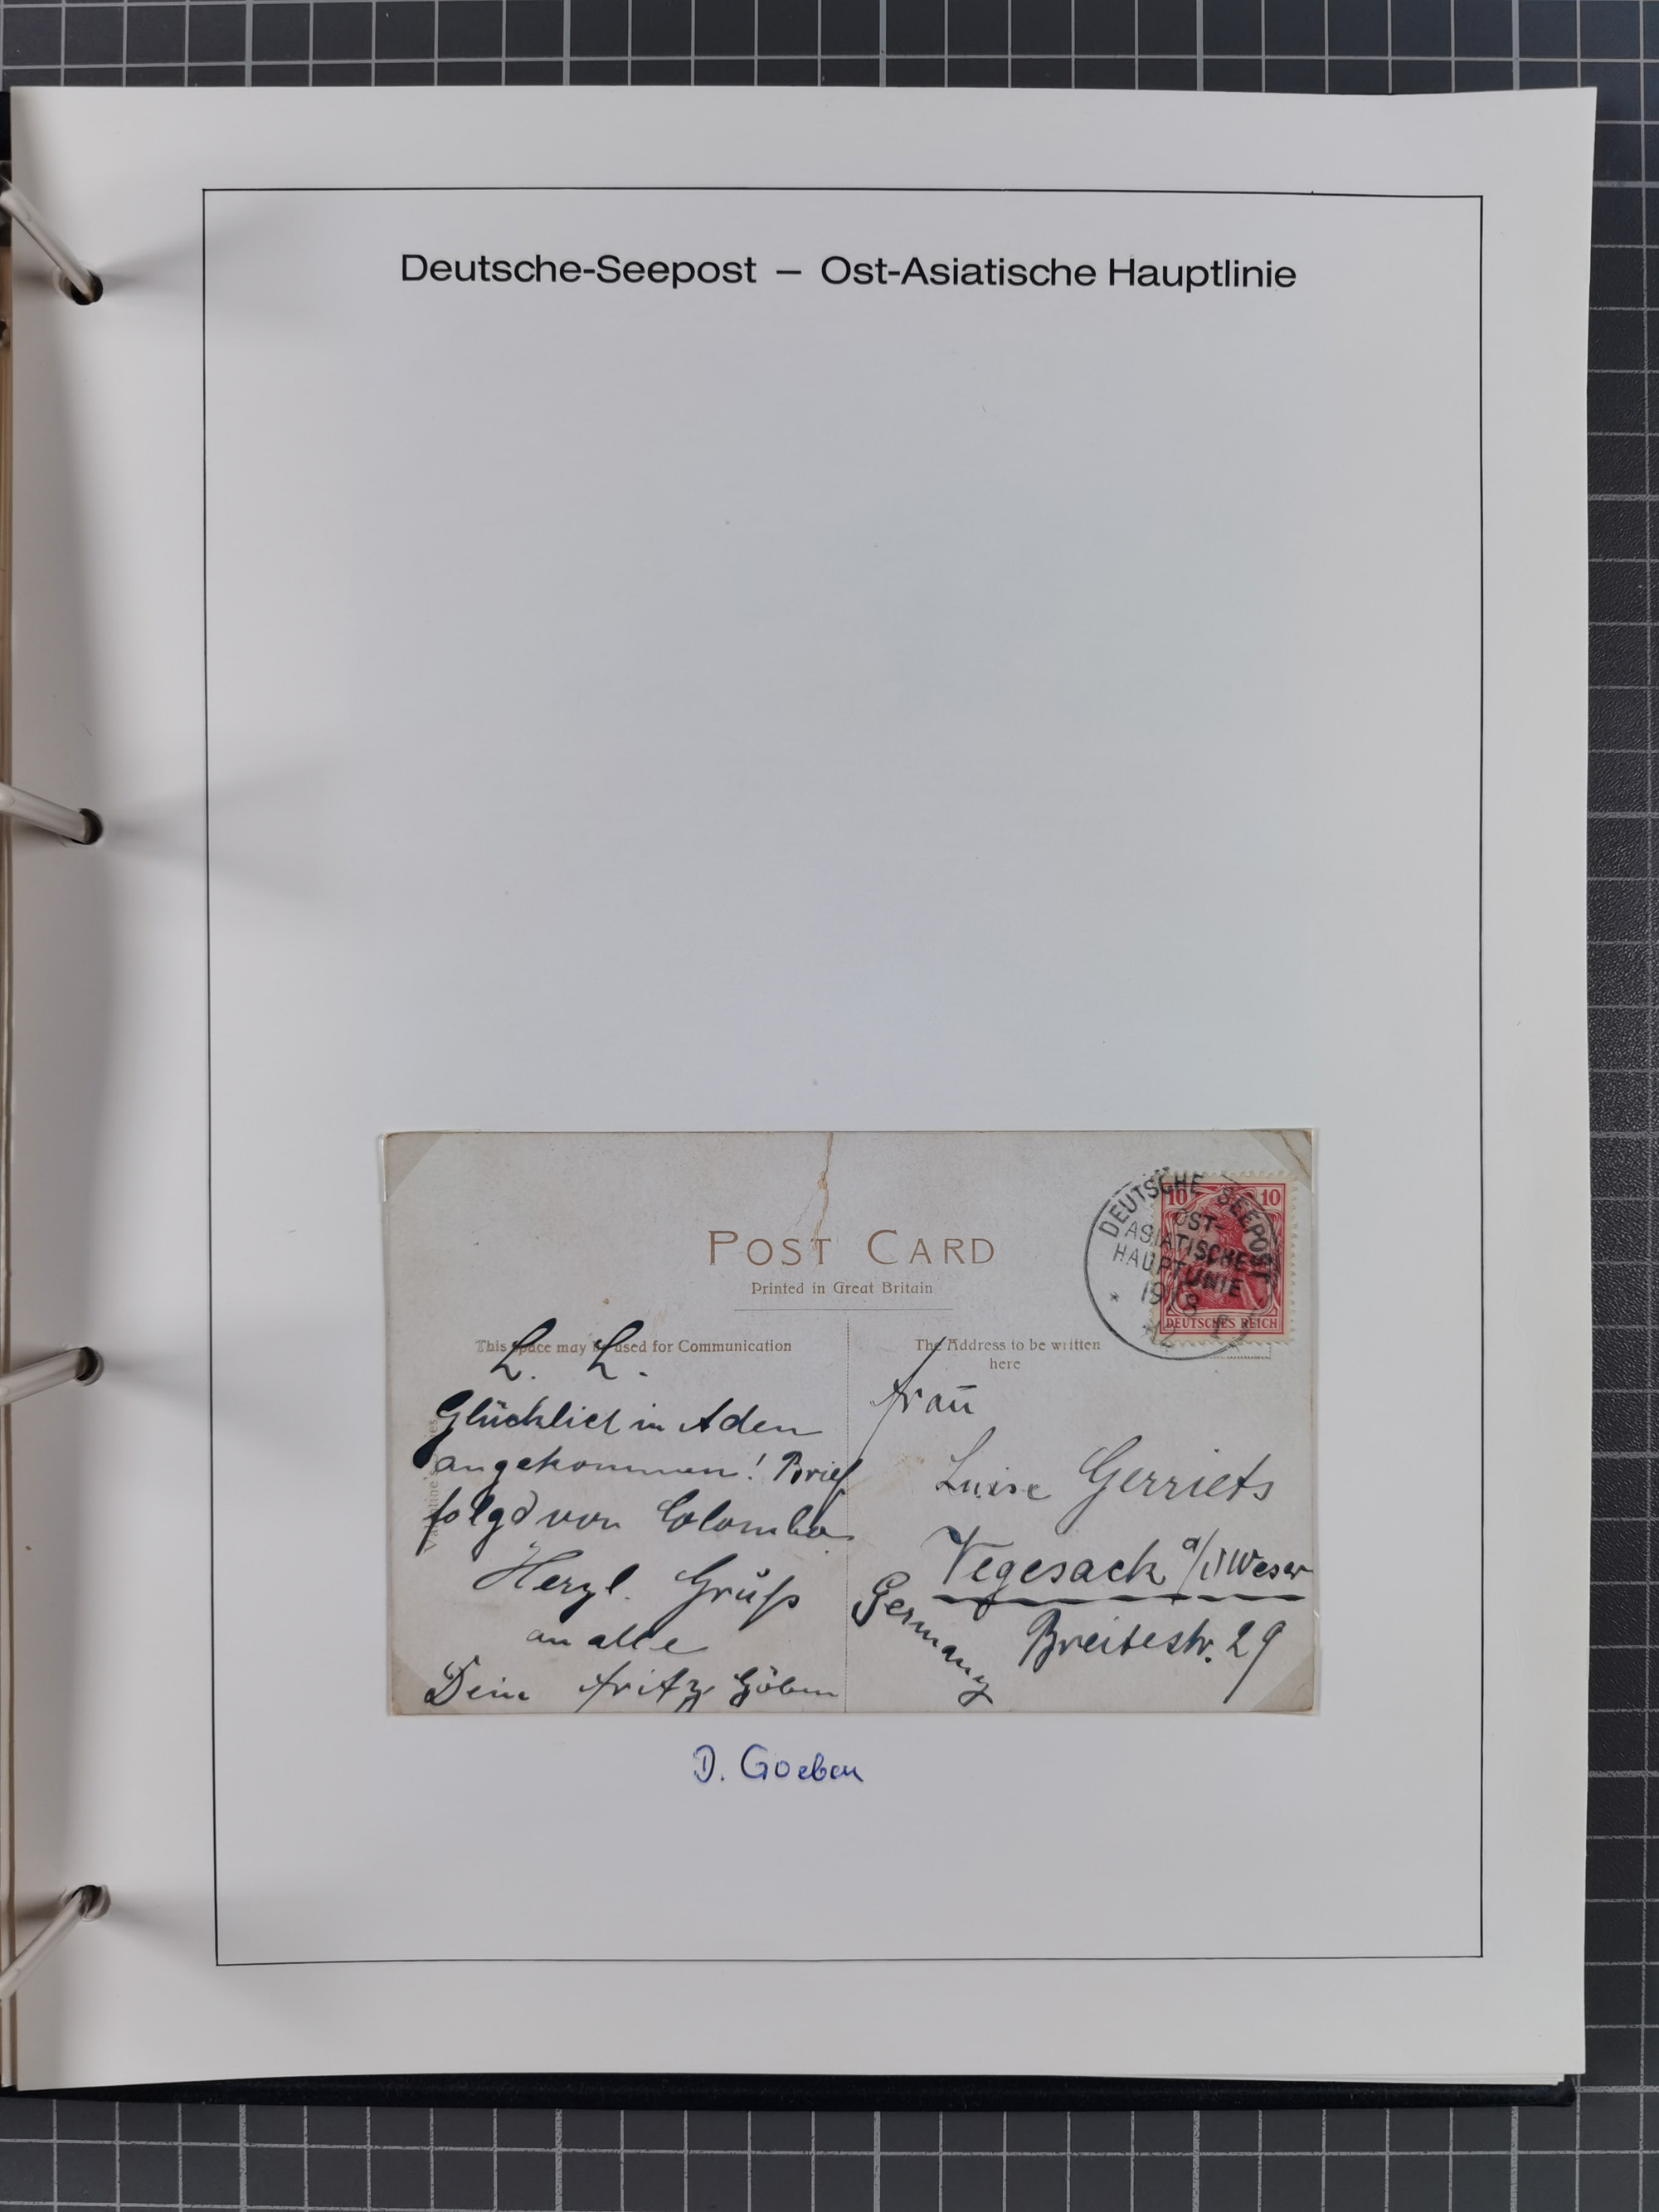 Deutsche-Seepost – Ost-Asiatische Hauptlinie
POST CARD
Printed in Great Britain
This space may be used for Communication
The Address to be written
here
DEUTSCHE SEEPOST
OST-
ASIATISCHE
HAUPTLINIE
10 10
DEUTSCHES REICH
L. L.
Glücklich in Aden
angekommen! Brief
folgd von Colombo
Herzl. Gruß
an alle
Dein Fritz Göben
Valentine's Series
Frau
Luise Gerriets
Vegesack a/d Weser
Germany
Breitestr. 29
D. Goeben